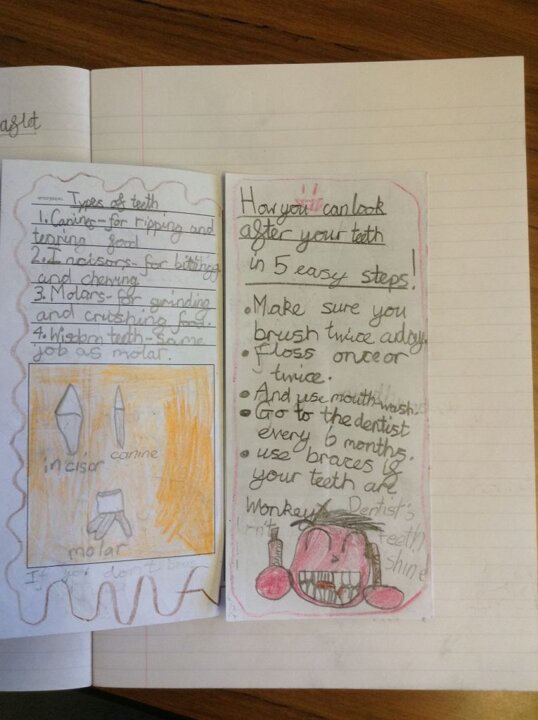 aflet
Types of teeth
1. Canines- for ripping and
tearing food
2. Incisors- for biting
and chewing
3. Molars- for grinding
and crushing food.
4. Wisdom teeth- same
job as molar.
incisor
canine
molar
If you don't
How you can look
after your teeth
in 5 easy steps!
• Make sure you
brush twice a day.
• Floss once or
twice.
• And use mouth wash
• Go to the dentist
every 6 months.
• use braces if
your teeth are
Wonkey
Dentist's
teeth
shine